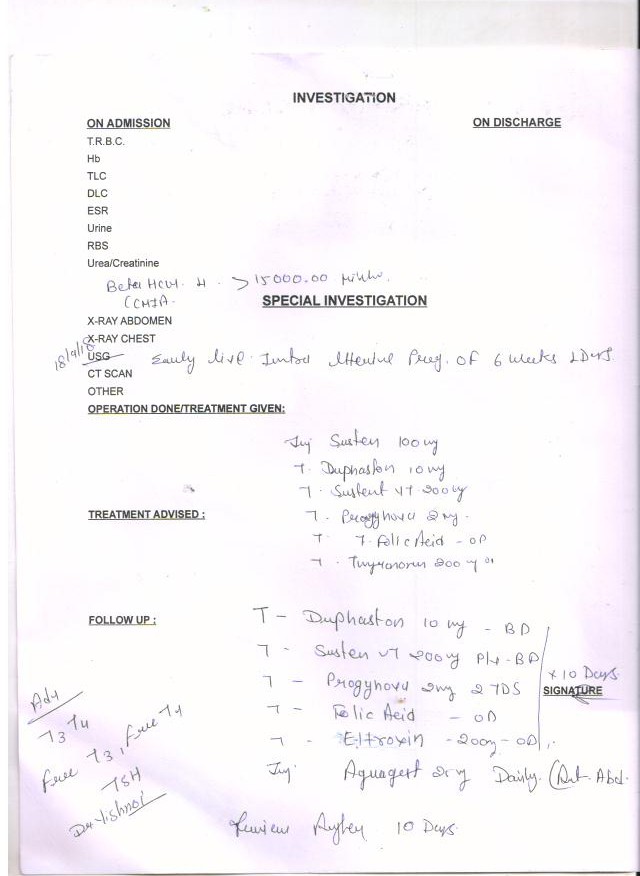 INVESTIGATION
ON ADMISSION
ON DISCHARGE
T.R.B.C.
Hb
TLC
DLC
ESR
Urine
RBS
Urea/Creatinine
Beta HCG > 15000.00
(CMIA.
SPECIAL INVESTIGATION
X-RAY ABDOMEN
X-RAY CHEST
18/9/18 USG Early live Preg. of 6 weeks 2 Days.
CT SCAN
OTHER
OPERATION DONE/TREATMENT GIVEN:
Inj Susten 100 mg
T. Duphaston 10 mg
T. Sustent VT 200 mg
TREATMENT ADVISED :
T. Progynova 2 mg.
T T. Folic Acid - OD
T. 200
FOLLOW UP :
T - Duphaston 10 mg - BD
T - Susten VT 200 mg P/V - BD
x 10 Days
T - Progynova 2 mg 2 TDS
SIGNATURE
T - Folic Acid - OD
T - Eltroxin - 200 - OD
Inj. Aquagest 25 mg Daily.
Adv
T3 T4
Free T3, Free T4
TSH
Dr Vishnoi
Review After 10 Days.